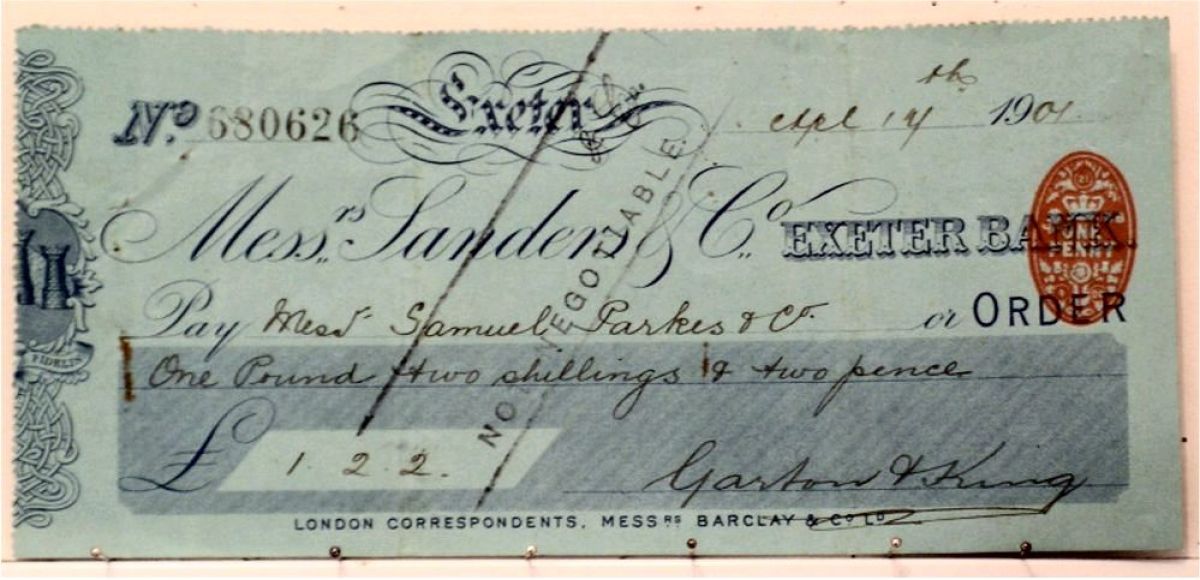 Exeter
No. 680626
Apl 14th 1901
Messrs Sanders & Co. EXETER BANK.
ONE PENNY
Pay Messrs Samuel Parkes & Co. or ORDER
FIDELIS
One Pound two shillings & two pence
£ 1. 2. 2.
Garton & King
NOT NEGOTIABLE
& Co.
LONDON CORRESPONDENTS, MESSRS BARCLAY & CO LD